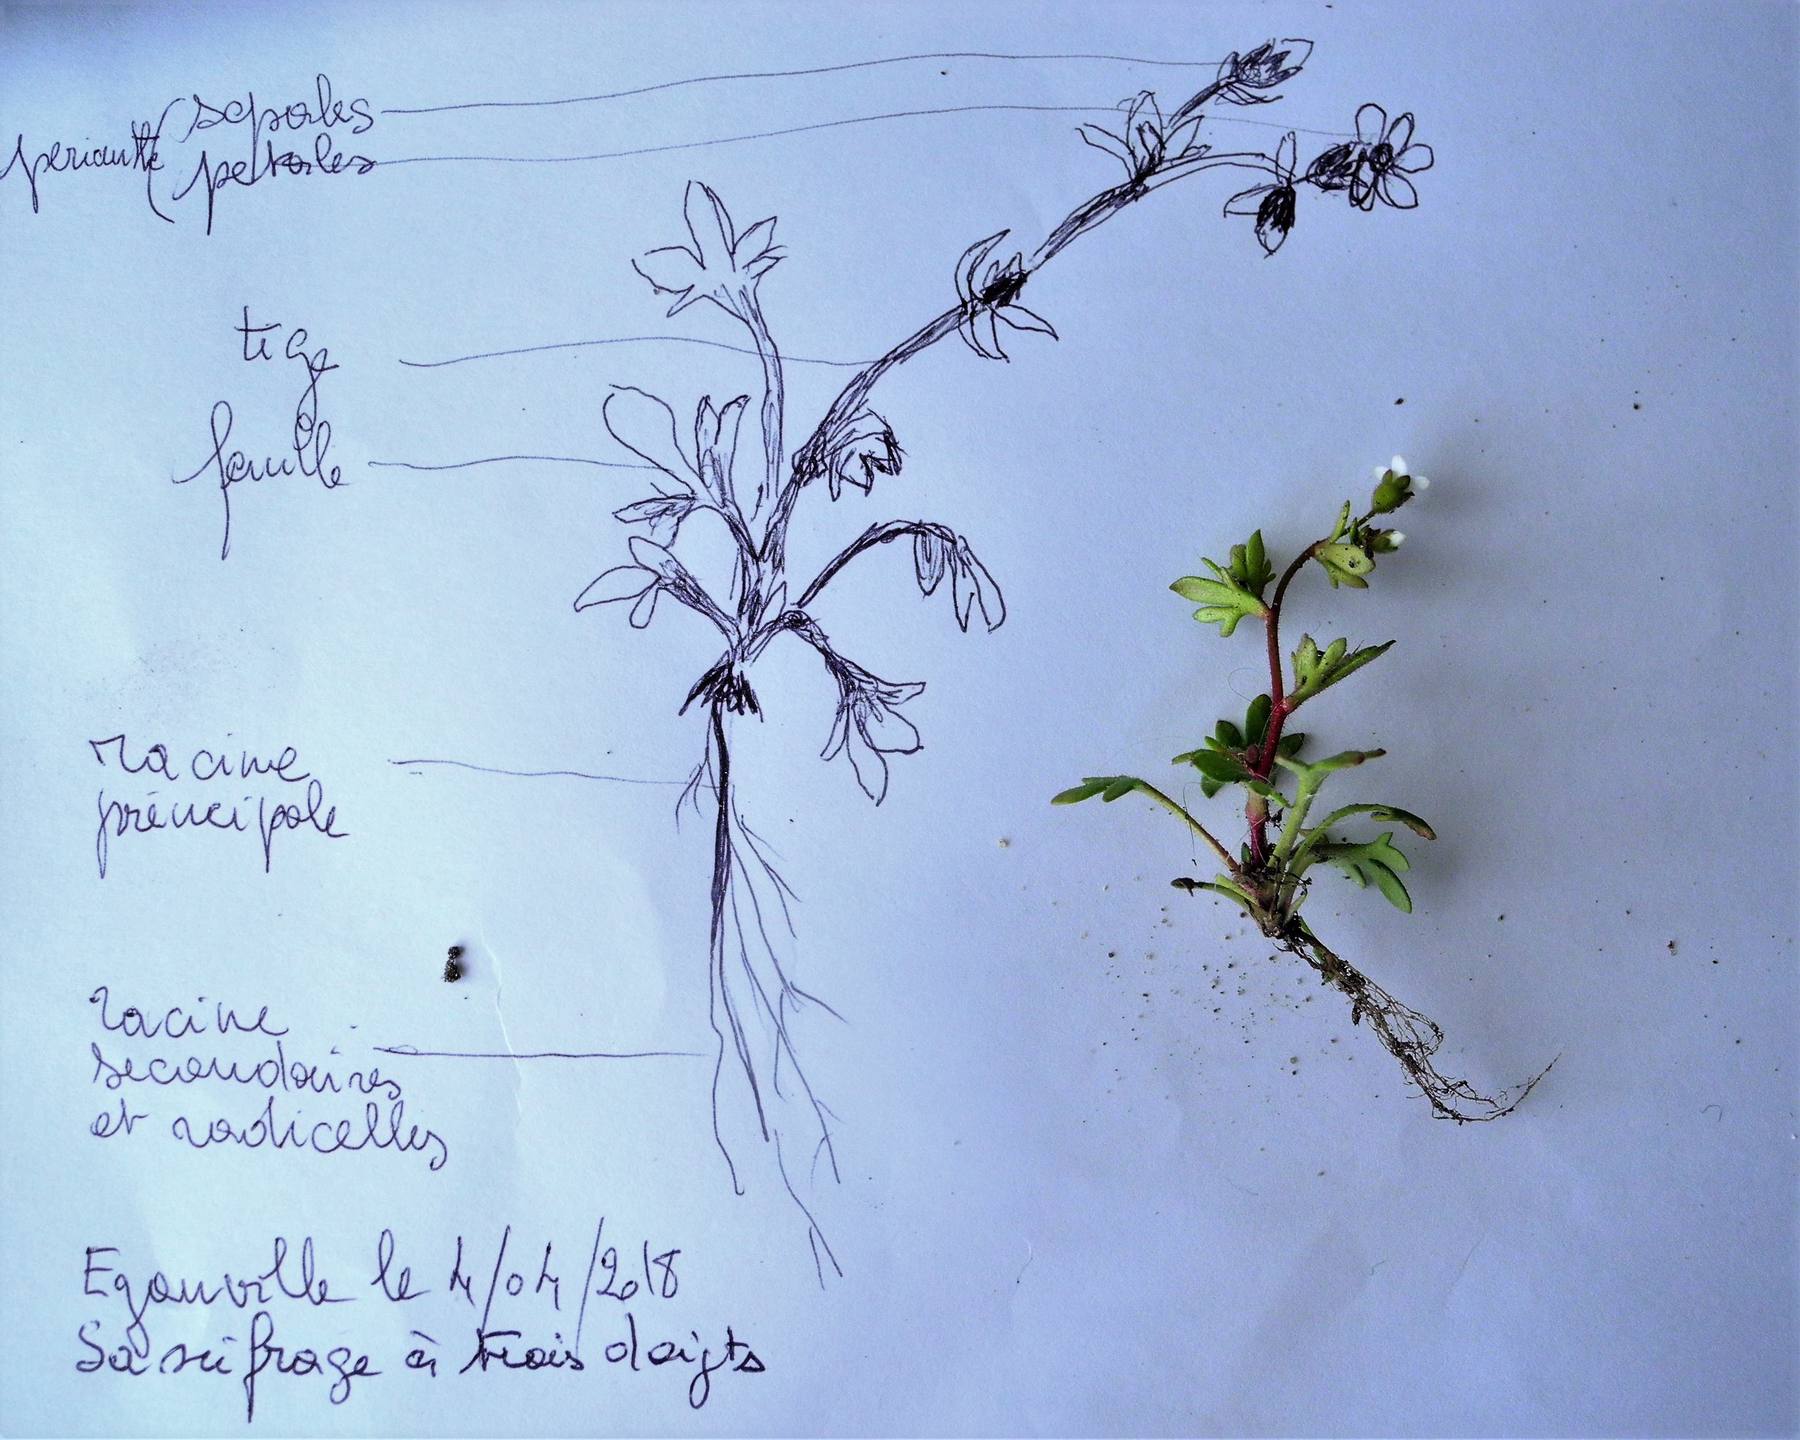 sepales
perianthe petales
tige
feuille
racine
principale
racine
secondaires
et radicelles
Eganville le 4/04/2018
Saxifrage à trois doigts